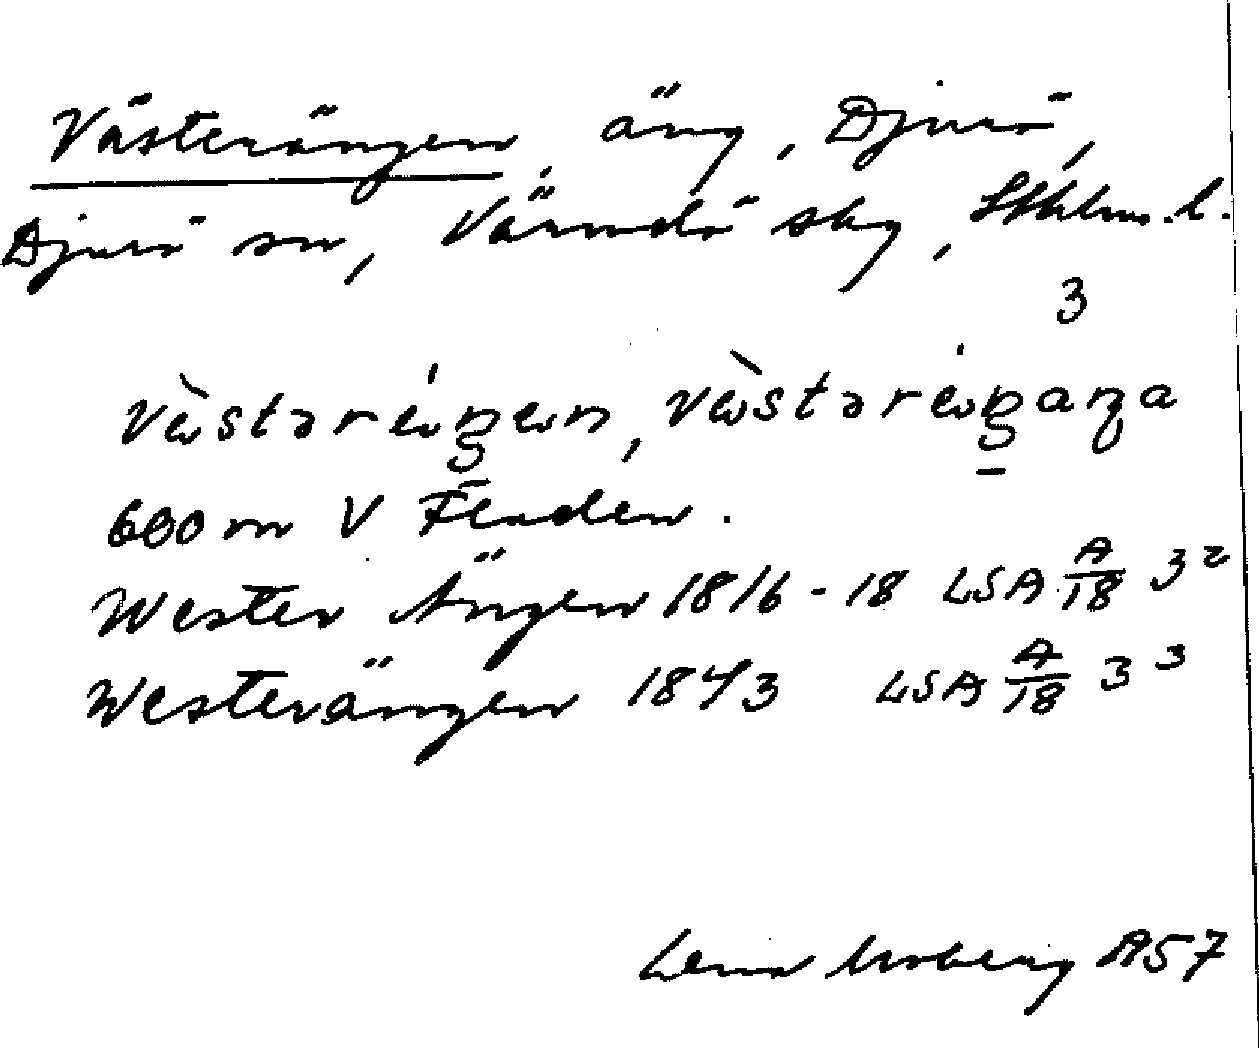 Västerängen, äng, Djurö,
Djurö sn, Värmdö skg, Sthlms l.
3
600 m V Fladen.
Wester Ängen 1816-18 LSA A/18 3²
Westerängen 1843 LSA A/18 3³
Lena Moberg A57